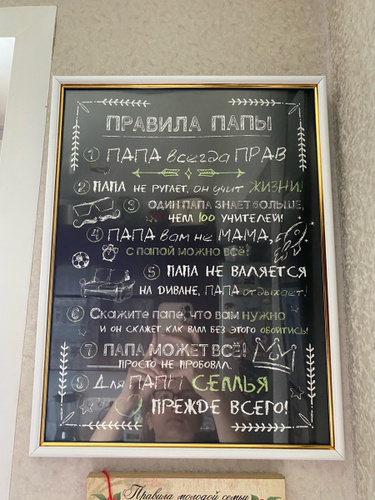 ПРАВИЛА ПАПЫ
1 ПАПА всегда ПРАВ
2 ПАПА НЕ РУГАЕТ, он учит ЖИЗНИ!
3 ОДИН ПАПА ЗНАЕТ БОЛЬШЕ,
ЧЕМ 100 УЧИТЕЛЕЙ!
4 ПАПА вам не МАМА,
С ПАПОЙ МОЖНО ВСЁ!
5 ПАПА НЕ ВАЛЯЕТСЯ
НА ДИВАНЕ, ПАПА отдыхает!
6 Скажите папе, что вам нужно
И ОН СКАЖЕТ КАК ВАМ БЕЗ ЭТОГО ОБОЙТИСЬ!
7 ПАПА МОЖЕТ ВСЁ!
ПРОСТО НЕ ПРОБОВАЛ.
8 Для ПАПЫ СЕМЬЯ
ПРЕЖДЕ ВСЕГО!
Правила молодой семьи